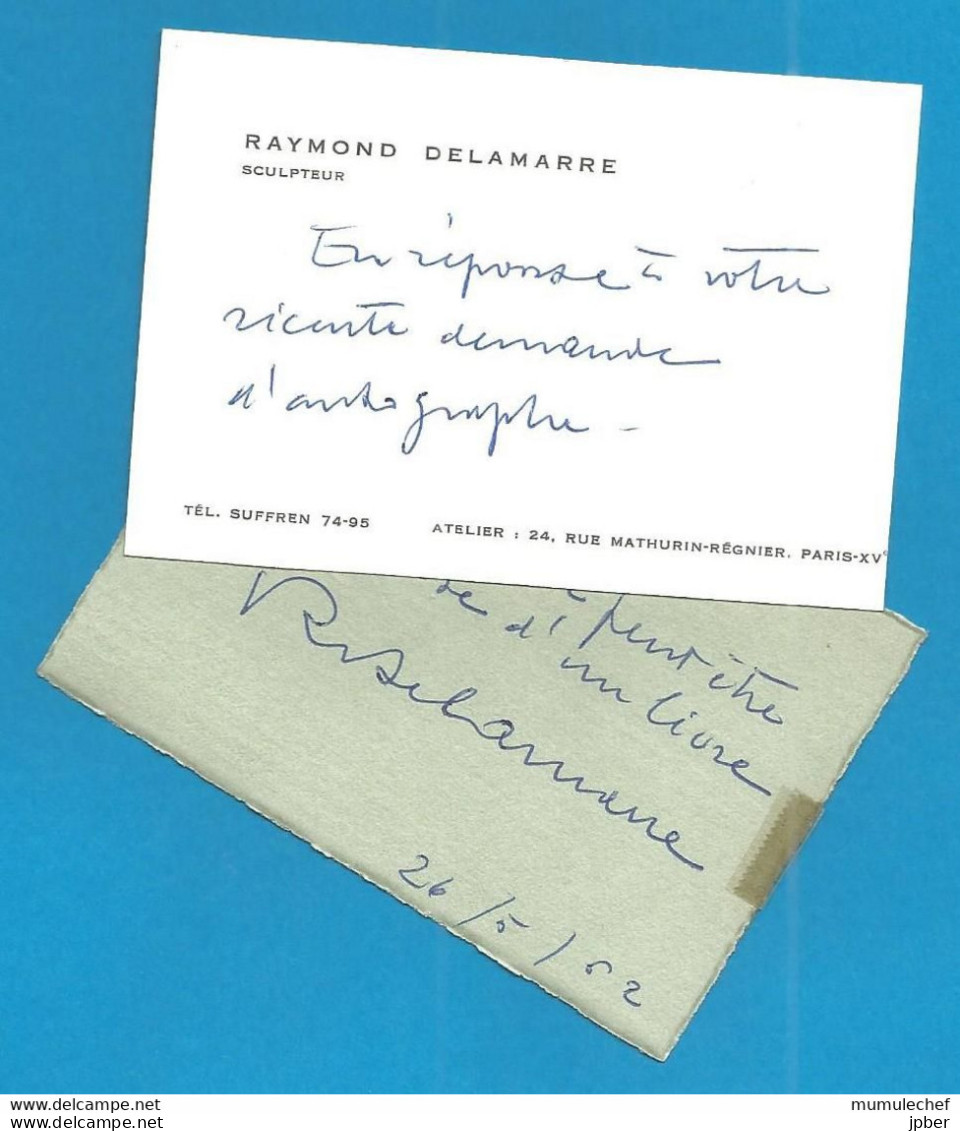 RAYMOND DELAMARRE
SCULPTEUR
En réponse à votre
récente demande
d'autographe -
TÉL. SUFFREN 74-95 ATELIER : 24, RUE MATHURIN-RÉGNIER, PARIS-XVe
peut être
se d'un livre
RDelamarre
26/5/62
www.delcampe.net
mumulechef
www.delcampe.net
jpber